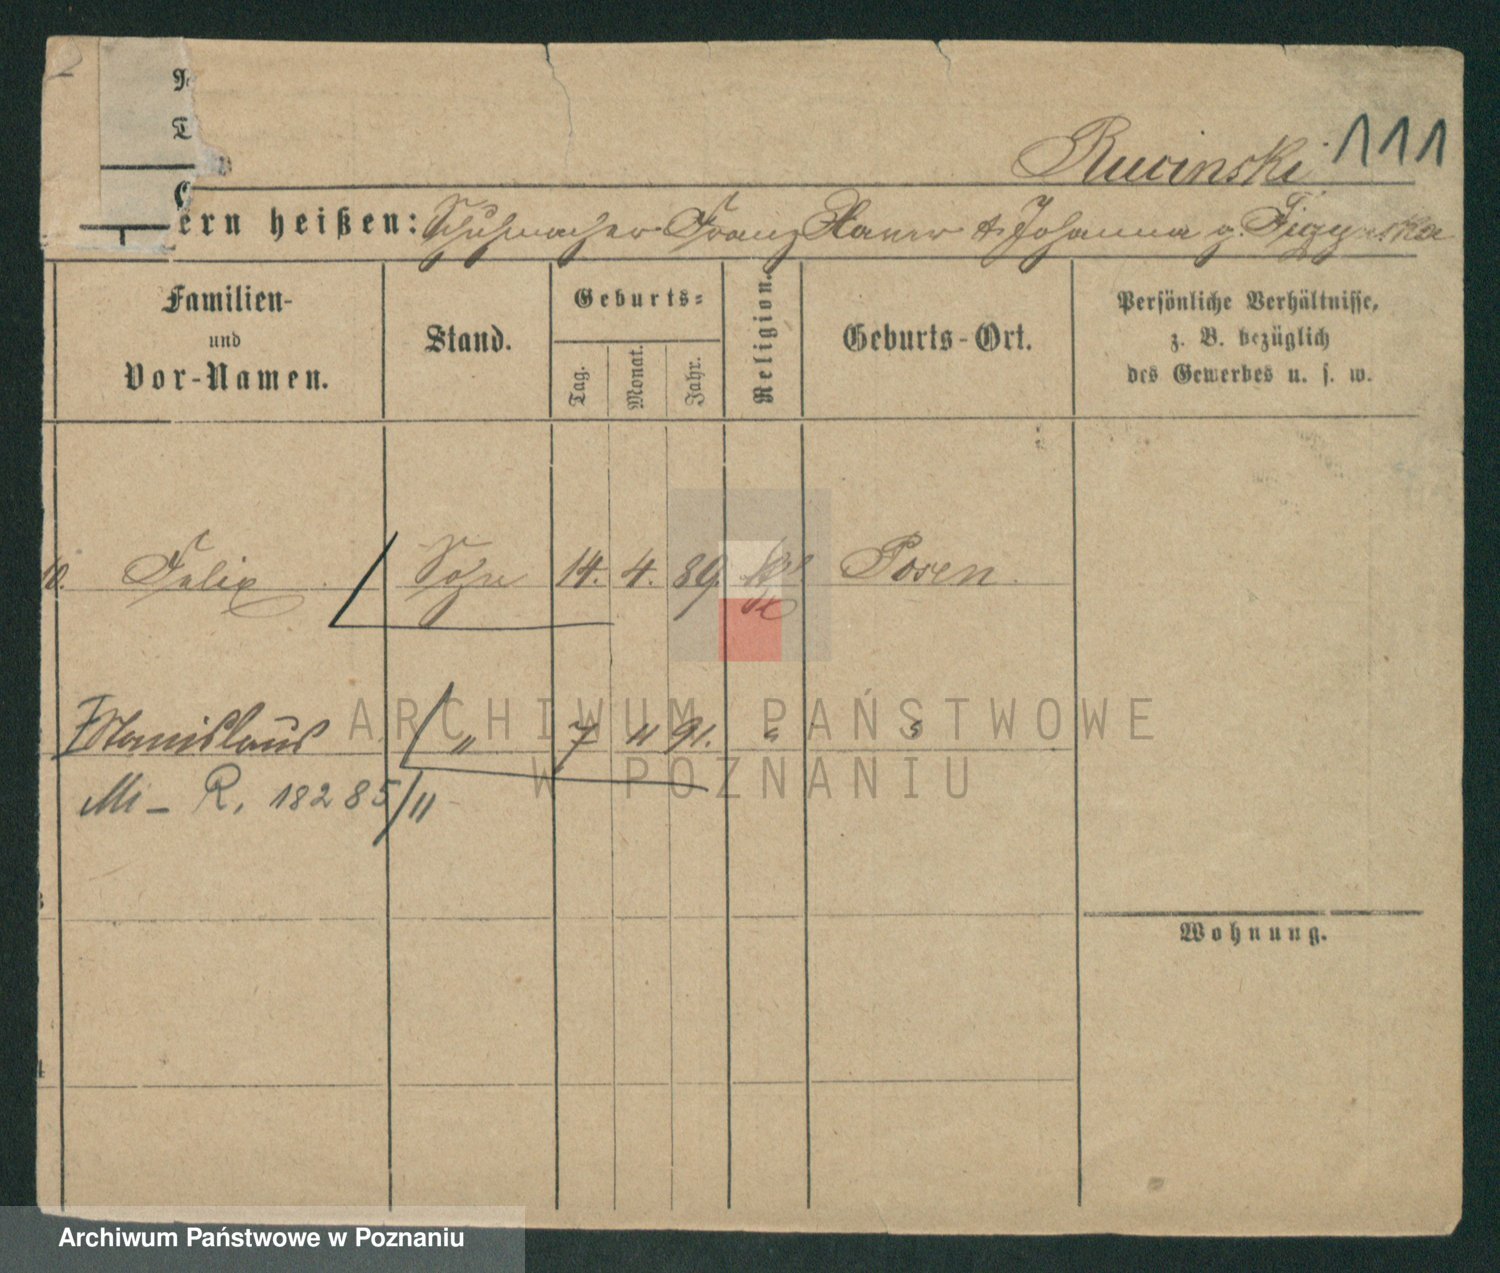 2
Rucinski 111
ern heißen: Schuhmacher Franz Xaver & Johanna g.
Familien-
und
Vor-Namen.
Stand.
Geburts-
Tag.
Monat.
Jahr.
Religion.
Geburts-Ort.
Persönliche Verhältnisse,
z. B. bezüglich
des Gewerbes u. s. w.
10. Felix Sohn 14. 4. 89. Posen
Stanislaus " 7 " 91. " "
R. 18285/11
Wohnung.
ARCHIWUM PAŃSTWOWE
W POZNANIU
Archiwum Państwowe w Poznaniu